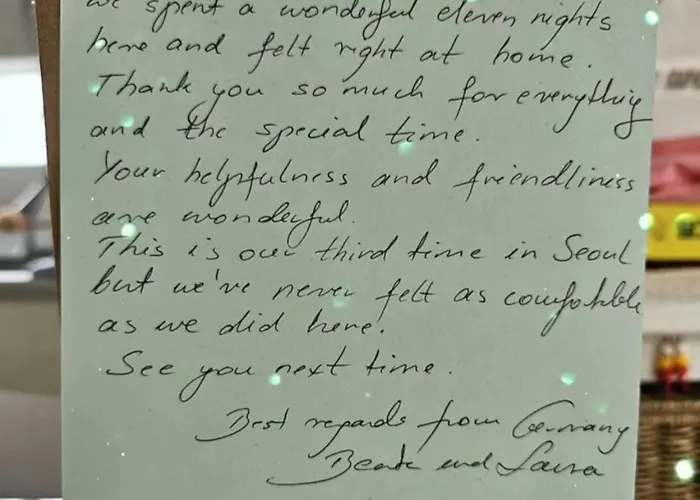 we spent a wonderful eleven nights
here and felt right at home.
Thank you so much for everything
and the special time.
Your helpfulness and friendliness
are wonderful.
This is our third time in Seoul
but we've never felt as comfortable
as we did here.
See you next time.
Best regards from Germany
Beate und Laura